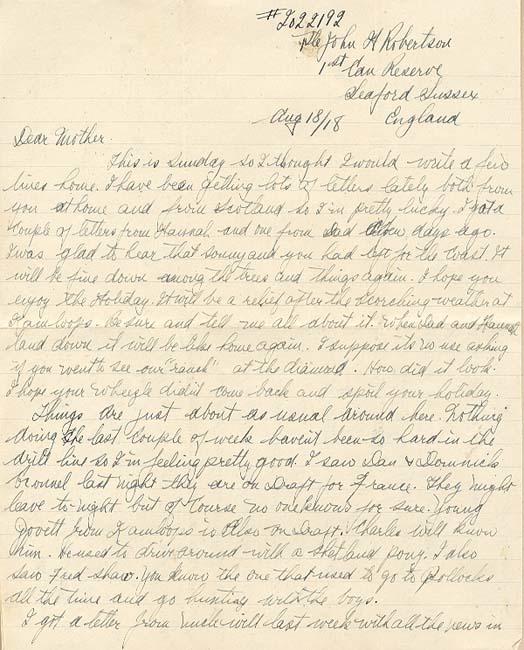 #2022192
Pte John H Robertson
1st Can Reserve
Seaford Sussex
Aug 18/18 England
Dear Mother.
This is Sunday so I thought I would write a few
lines home. I have been getting lots of letters lately both from
you at home and from Scotland so I'm pretty lucky. I got a
couple of letters from Hannah and one from Dad a few days ago.
I was glad to hear that sonny and you had left for the coast. It
will be fine down among the trees and things again. I hope you
enjoy the Holiday. It will be a relief after the scorching weather at
Kamloops. Be sure and tell me all about it. When Dad and Hannah
land down it will be like home again. I suppose its no use asking
if you went to see our "ranch" at the diamond. How did it look.
I hope your wheezle didn't come back and spoil your holiday.
Things are just about as usual around here. Nothing
doing the last couple of week haven't been so hard in the
drill line so I'm feeling pretty good. I saw Dan & Dominick
last night they are on Draft for France. They might
leave to-night but of course no one knows for sure. Young
from Kamloops is also on Draft. Charles will know
him. He used to drive around with a shetland pony. I also
saw Fred Shaw. You know the one that used to go to Pollocks
all the time and go hunting with the boys.
I got a letter from Uncle Will last week with all the news in